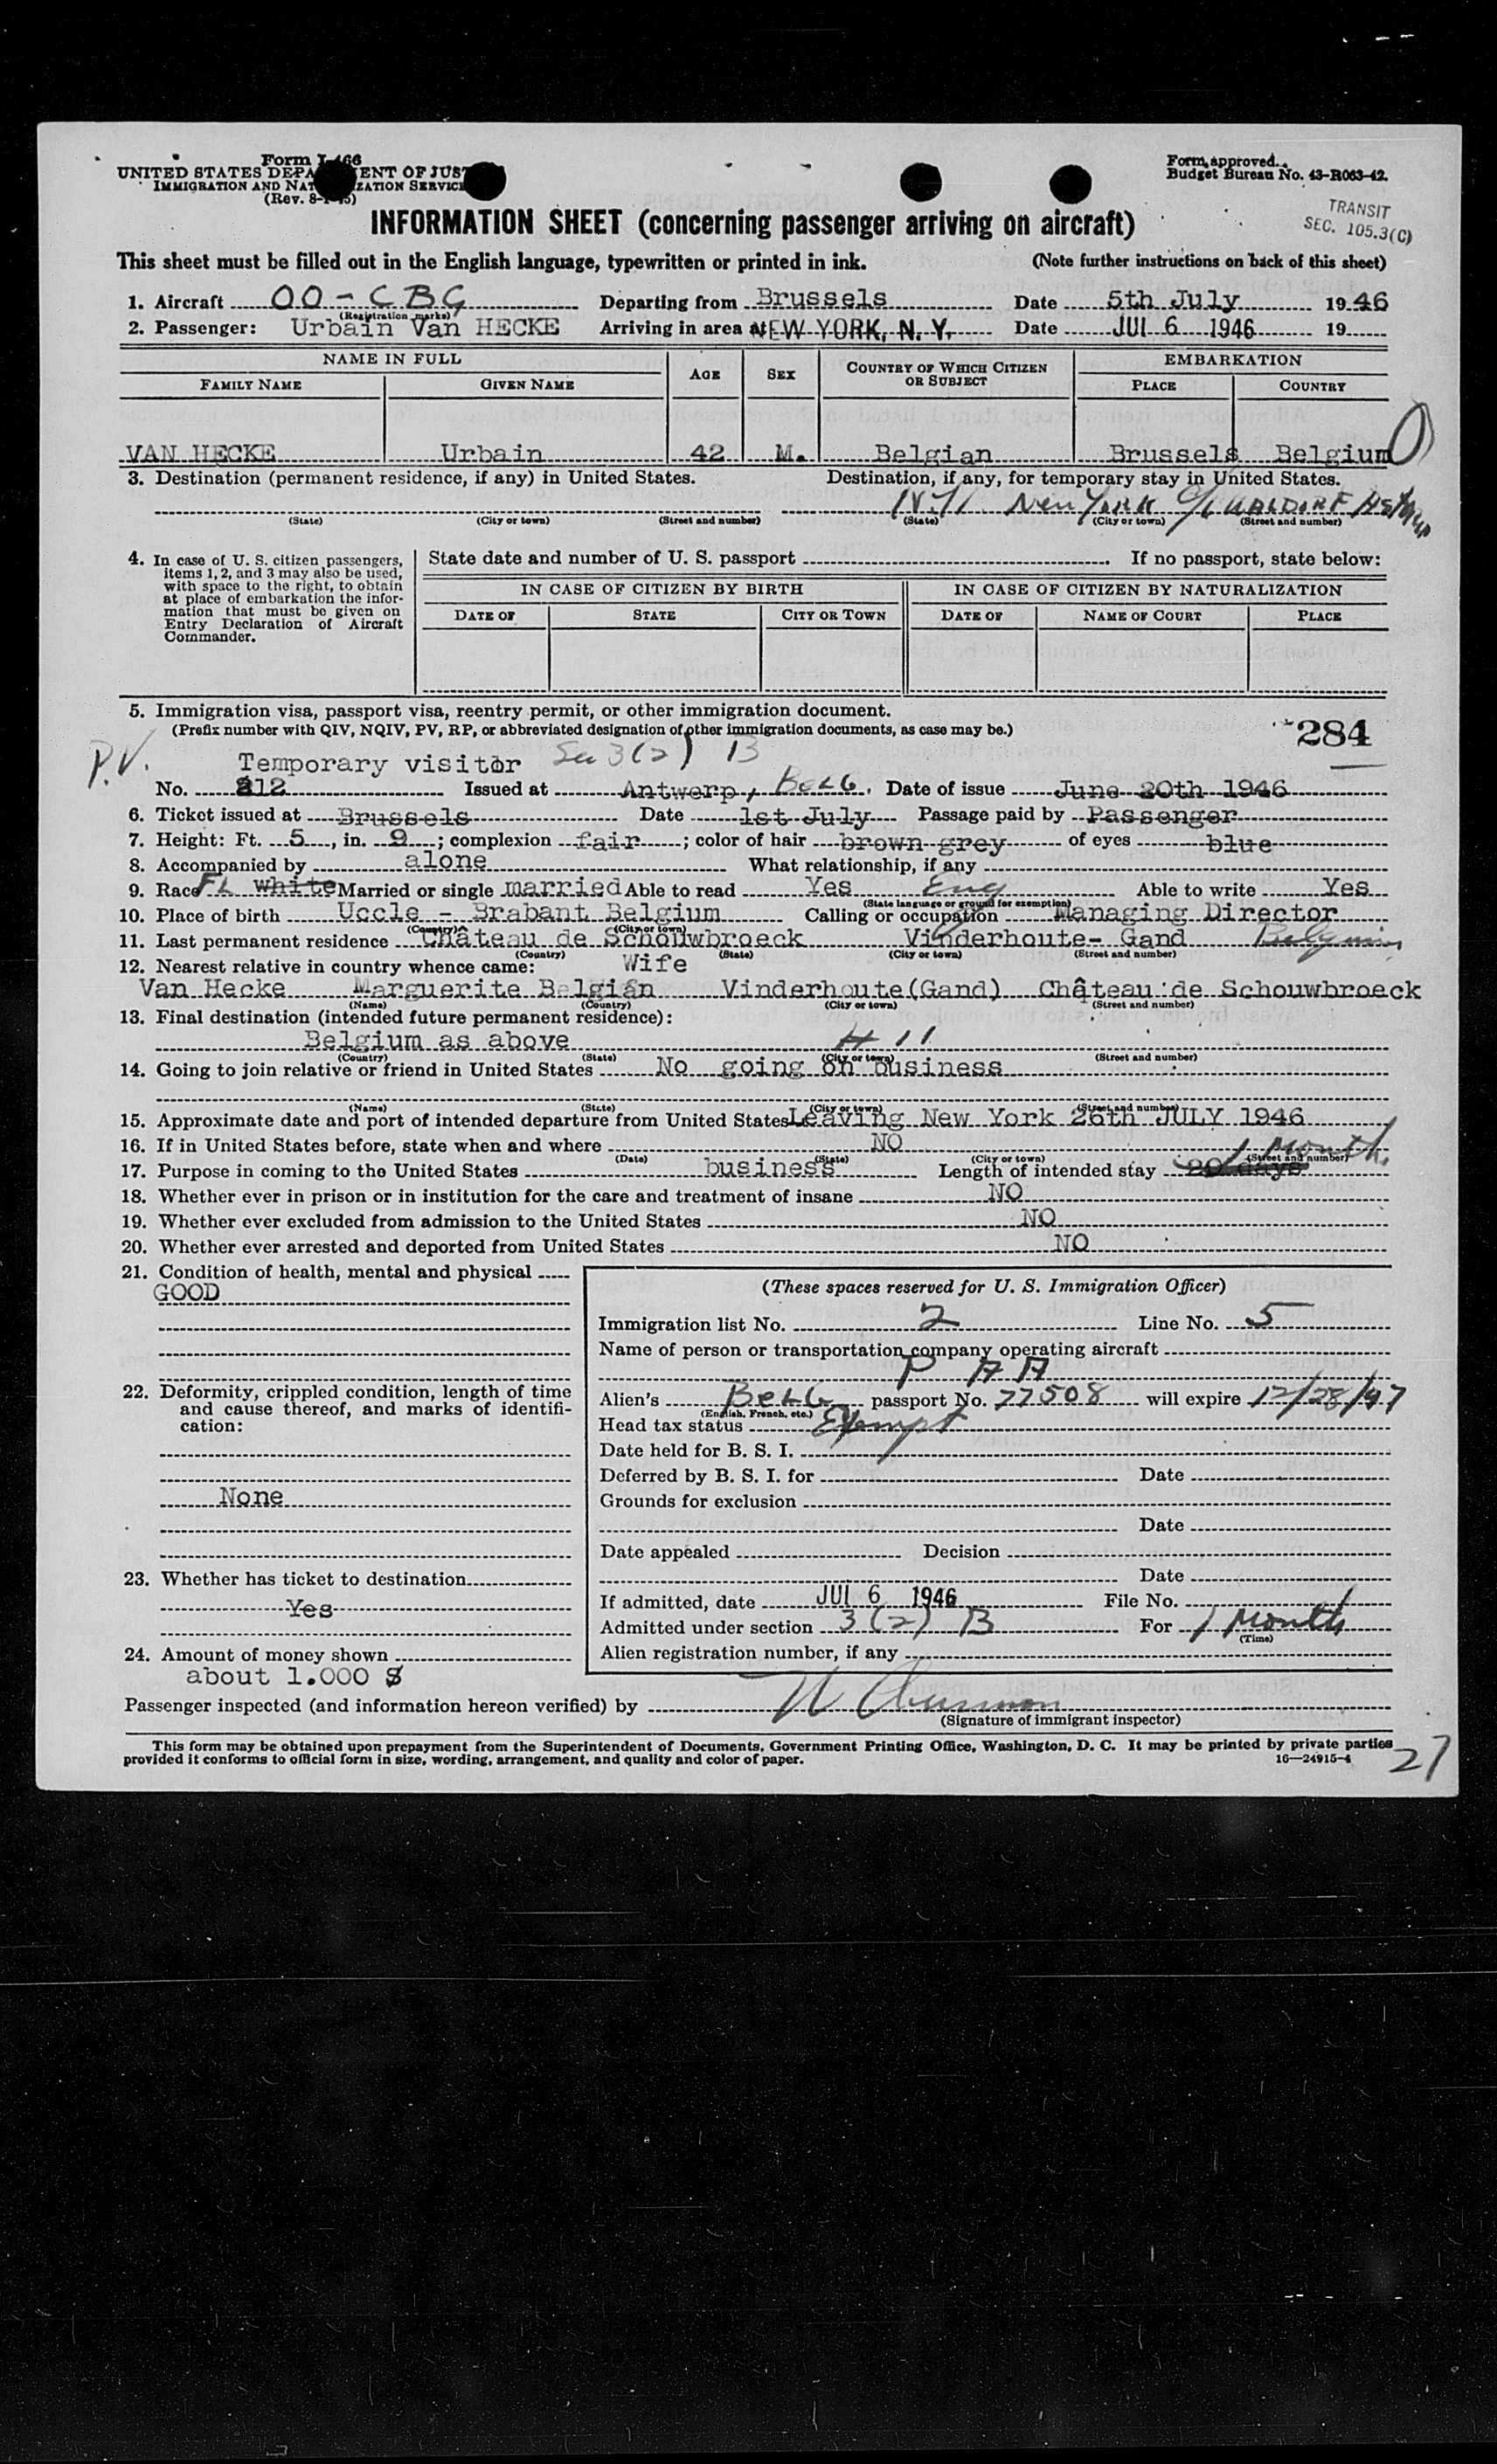 Form I-466
UNITED STATES DEPARTMENT OF JUSTICE
IMMIGRATION AND NATURALIZATION SERVICE
(Rev. 8-1-45)
Form approved.
Budget Bureau No. 43-R063-42.
TRANSIT
SEC. 105.3(C)
INFORMATION SHEET (concerning passenger arriving on aircraft)
This sheet must be filled out in the English language, typewritten or printed in ink. (Note further instructions on back of this sheet)
1. Aircraft OO-CBG Departing from Brussels Date 5th July 1946
(Registration marks)
2. Passenger: Urbain Van HECKE Arriving in area at NEW YORK, N. Y. Date JUL 6 1946 19
NAME IN FULL AGE SEX COUNTRY OF WHICH CITIZEN OR SUBJECT EMBARKATION
FAMILY NAME GIVEN NAME PLACE COUNTRY
VAN HECKE Urbain 42 M. Belgian Brussels Belgium
3. Destination (permanent residence, if any) in United States. Destination, if any, for temporary stay in United States.
N.Y. New York c/o WALDORF
(State) (City or town) (Street and number) (State) (City or town) (Street and number)
4. In case of U. S. citizen passengers, items 1, 2, and 3 may also be used, with space to the right, to obtain at place of embarkation the information that must be given on Entry Declaration of Aircraft Commander.
State date and number of U. S. passport . If no passport, state below:
IN CASE OF CITIZEN BY BIRTH IN CASE OF CITIZEN BY NATURALIZATION
DATE OF STATE CITY OR TOWN DATE OF NAME OF COURT PLACE
5. Immigration visa, passport visa, reentry permit, or other immigration document.
(Prefix number with QIV, NQIV, PV, RP, or abbreviated designation of other immigration documents, as case may be.)
284
P.V.
Temporary visitor Sec 3(2) B
No. 212 Issued at Antwerp, BELG. Date of issue June 20th 1946
6. Ticket issued at Brussels Date 1st July Passage paid by Passenger
7. Height: Ft. 5, in. 9; complexion fair; color of hair brown grey of eyes blue
8. Accompanied by alone What relationship, if any
9. Race FL white Married or single married Able to read Yes Eng Able to write Yes
(State language or ground for exemption)
10. Place of birth Uccle - Brabant Belgium Calling or occupation Managing Director
(Country) (City or town)
11. Last permanent residence Château de Schouwbroeck Vinderhoute- Gand Belgium
(Country) (State) (City or town) (Street and number)
12. Nearest relative in country whence came: Wife
Van Hecke Marguerite Belgian Vinderhoute(Gand) Château de Schouwbroeck
(Name) (Country) (City or town) (Street and number)
13. Final destination (intended future permanent residence):
Belgium as above
(Country) (State) (City or town) (Street and number)
14. Going to join relative or friend in United States No going on business
(Name) (State) (City or town) (Street and number)
15. Approximate date and port of intended departure from United States Leaving New York 26th JULY 1946
16. If in United States before, state when and where NO
(Date) (State) (City or town) (Street and number)
1 Month.
17. Purpose in coming to the United States business Length of intended stay 20 days
18. Whether ever in prison or in institution for the care and treatment of insane NO
19. Whether ever excluded from admission to the United States NO
20. Whether ever arrested and deported from United States NO
21. Condition of health, mental and physical
GOOD
22. Deformity, crippled condition, length of time and cause thereof, and marks of identification:
None
23. Whether has ticket to destination
Yes
24. Amount of money shown
about 1.000 $
(These spaces reserved for U. S. Immigration Officer)
Immigration list No. 2 Line No. 5
Name of person or transportation company operating aircraft
P A A
Alien's BELG passport No. 77508 will expire 12/28/47
(English, French, etc.)
Head tax status Exempt
Date held for B. S. I.
Deferred by B. S. I. for Date
Grounds for exclusion
Date
Date appealed Decision
Date
If admitted, date JUL 6 1946 File No.
Admitted under section 3(2) B For 1 Month
(Time)
Alien registration number, if any
Passenger inspected (and information hereon verified) by
(Signature of immigrant inspector)
This form may be obtained upon prepayment from the Superintendent of Documents, Government Printing Office, Washington, D. C. It may be printed by private parties
provided it conforms to official form in size, wording, arrangement, and quality and color of paper. 16—24915-4
27